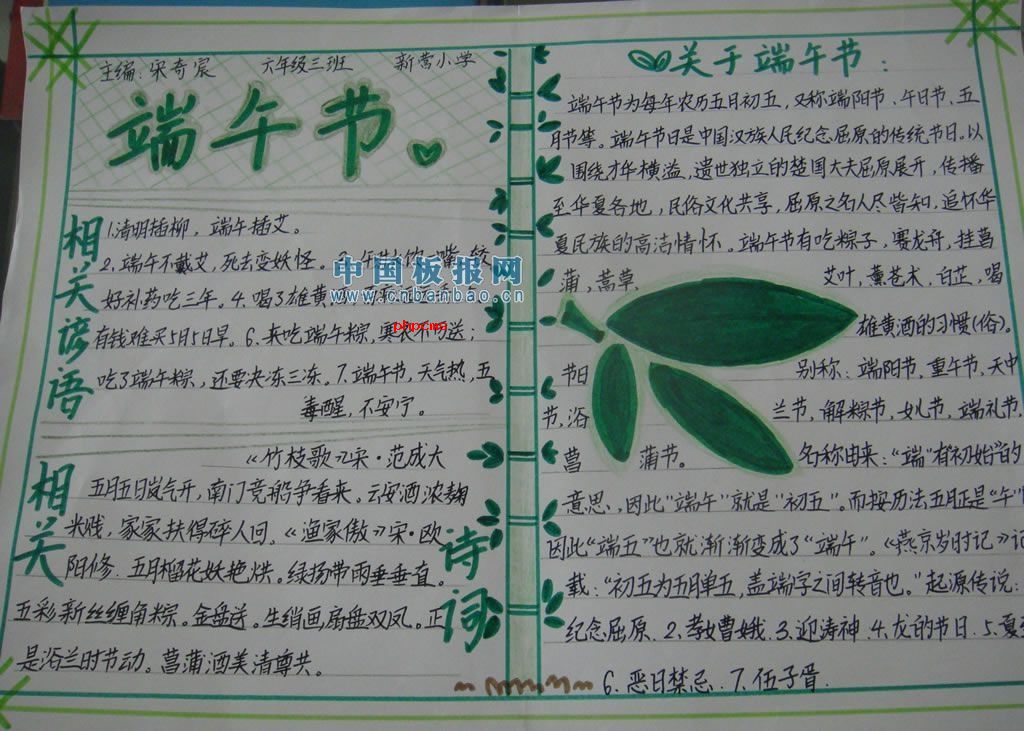 主编:宋奇宸 六年级三班 新营小学
端午节
相关谚语
1.清明插柳，端午插艾。
2.端午不戴艾，死去变妖怪。
好补药吃三年。4.喝了雄黄
有钱难买5月5日早。6.未吃端午粽，寒衣不可送；
吃了端午粽，还要冻三冻。7.端午节，天气热，五
毒醒，不安宁。
相关诗词
《竹枝歌》宋·范成大
五月五日岚气开，南门竞船争看来。云安酒浓麹
米贱，家家扶得碎人回。《渔家傲》宋·欧
阳修.五月榴花妖艳烘。绿扬带雨垂垂直。
五彩新丝缠角粽。金盘送。生绡画扇盘双凤。正
是浴兰时节动。菖蒲酒美清尊共。
中国板报网
www.cnbanbao.cn
phpcms
关于端午节：
端午节为每年农历五月初五，又称端阳节、午日节、五
月节等。端午节日是中国汉族人民纪念屈原的传统节日。以
围绕才华横溢，遗世独立的楚国大夫屈原展开，传播
至华夏各地，民俗文化共享，屈原之名人尽皆知，追怀华
夏民族的高洁情怀。端午节有吃粽子，赛龙舟，挂菖
蒲，蒿草，艾叶，薰苍术，白芷，喝
雄黄酒的习惯(俗)。
节日别称：端阳节，重午节，天中
节，浴兰节，解粽节，女儿节，端礼节，
菖蒲节。名称由来："端"有初始的
意思，因此"端午"就是"初五"。而按历法五月正是"午"
因此"端五"也就渐渐变成了"端午"。《燕京岁时记》记
载："初五为五月单五，盖端字之间转音也。"起源传说：
纪念屈原.2.孝女曹娥.3.迎涛神.4.龙的节日.5.夏至
6.恶日禁忌.7.伍子胥.